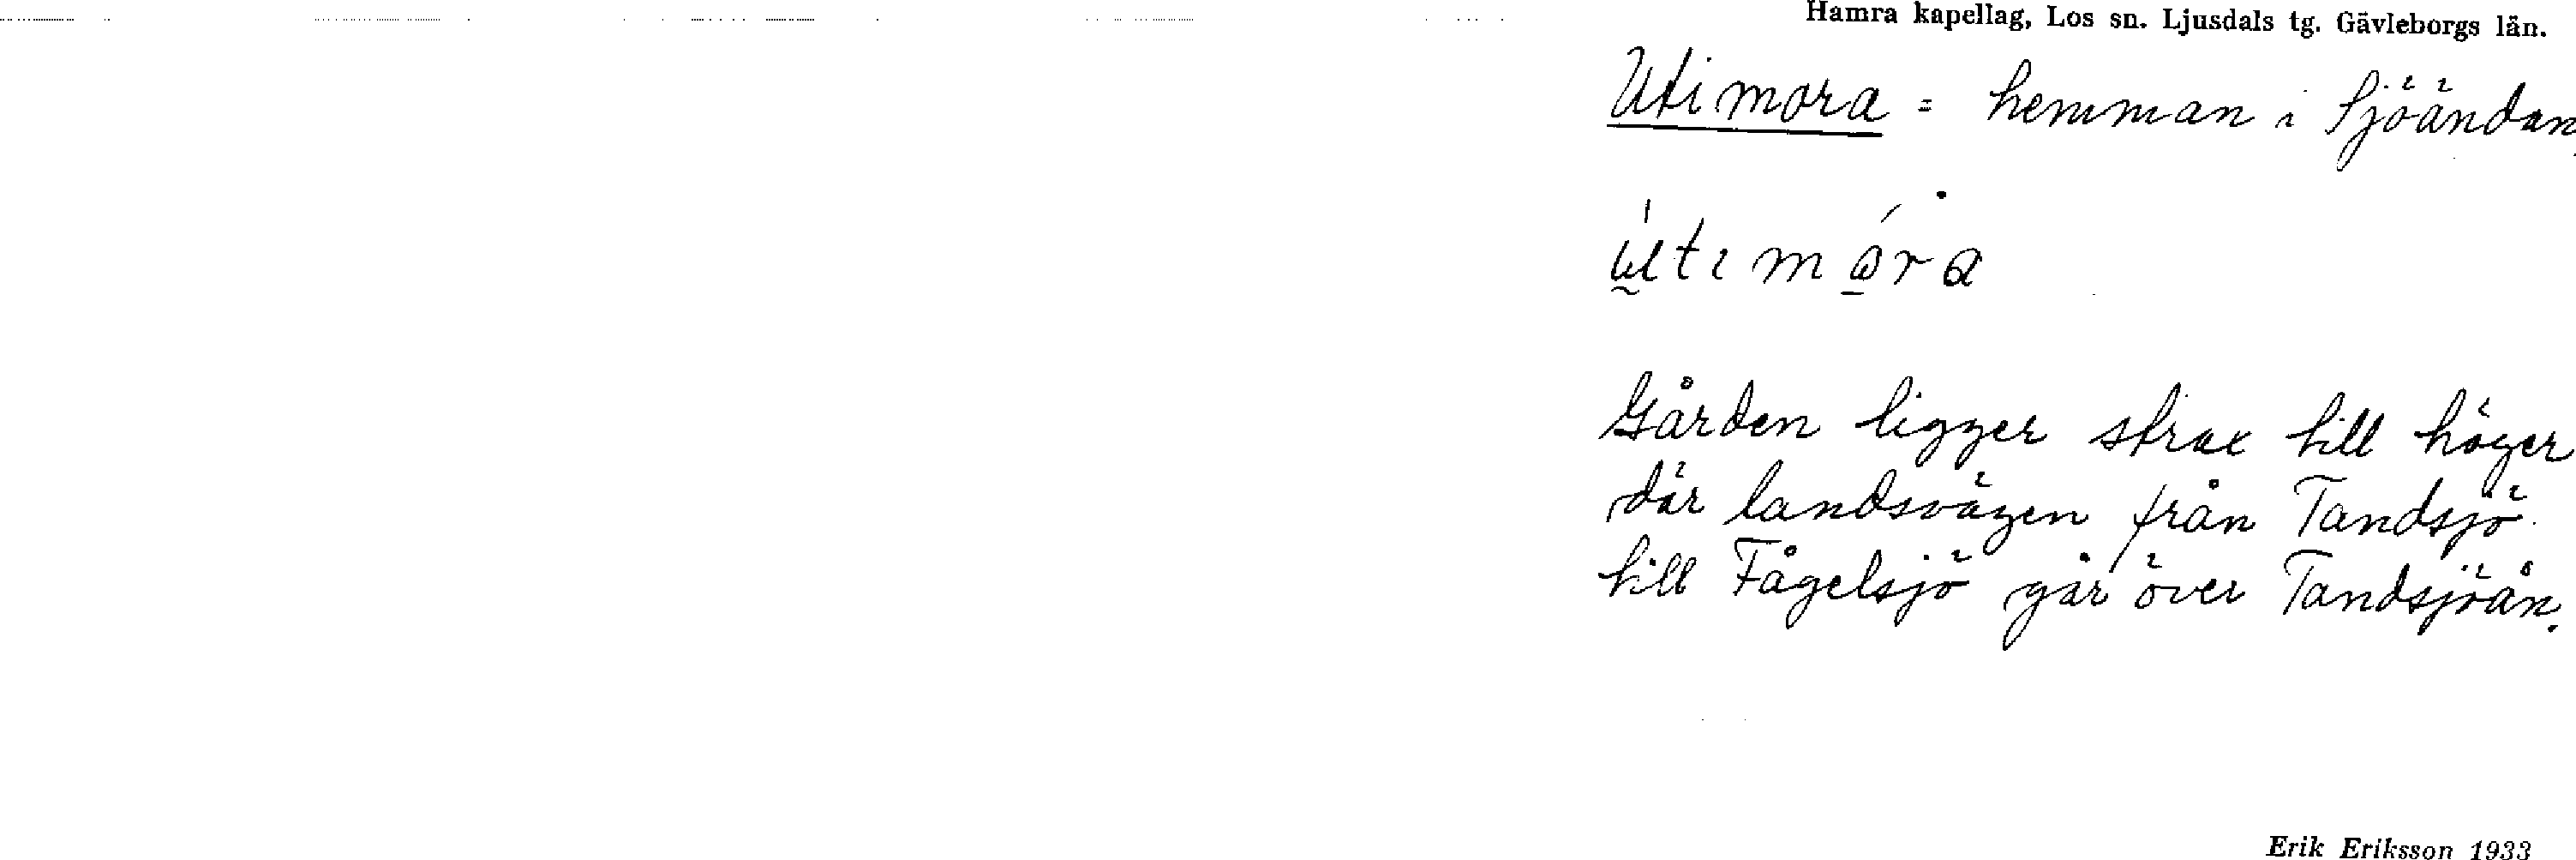 Hamra kapellag, Los sn. Ljusdals tg. Gävleborgs län.
Utimora = hemman i Sjöändan
Gården ligger strax till höger
där landsvägen från Tandsjö
till Fågelsjö går över Tandsjöån.
Erik Eriksson 1933